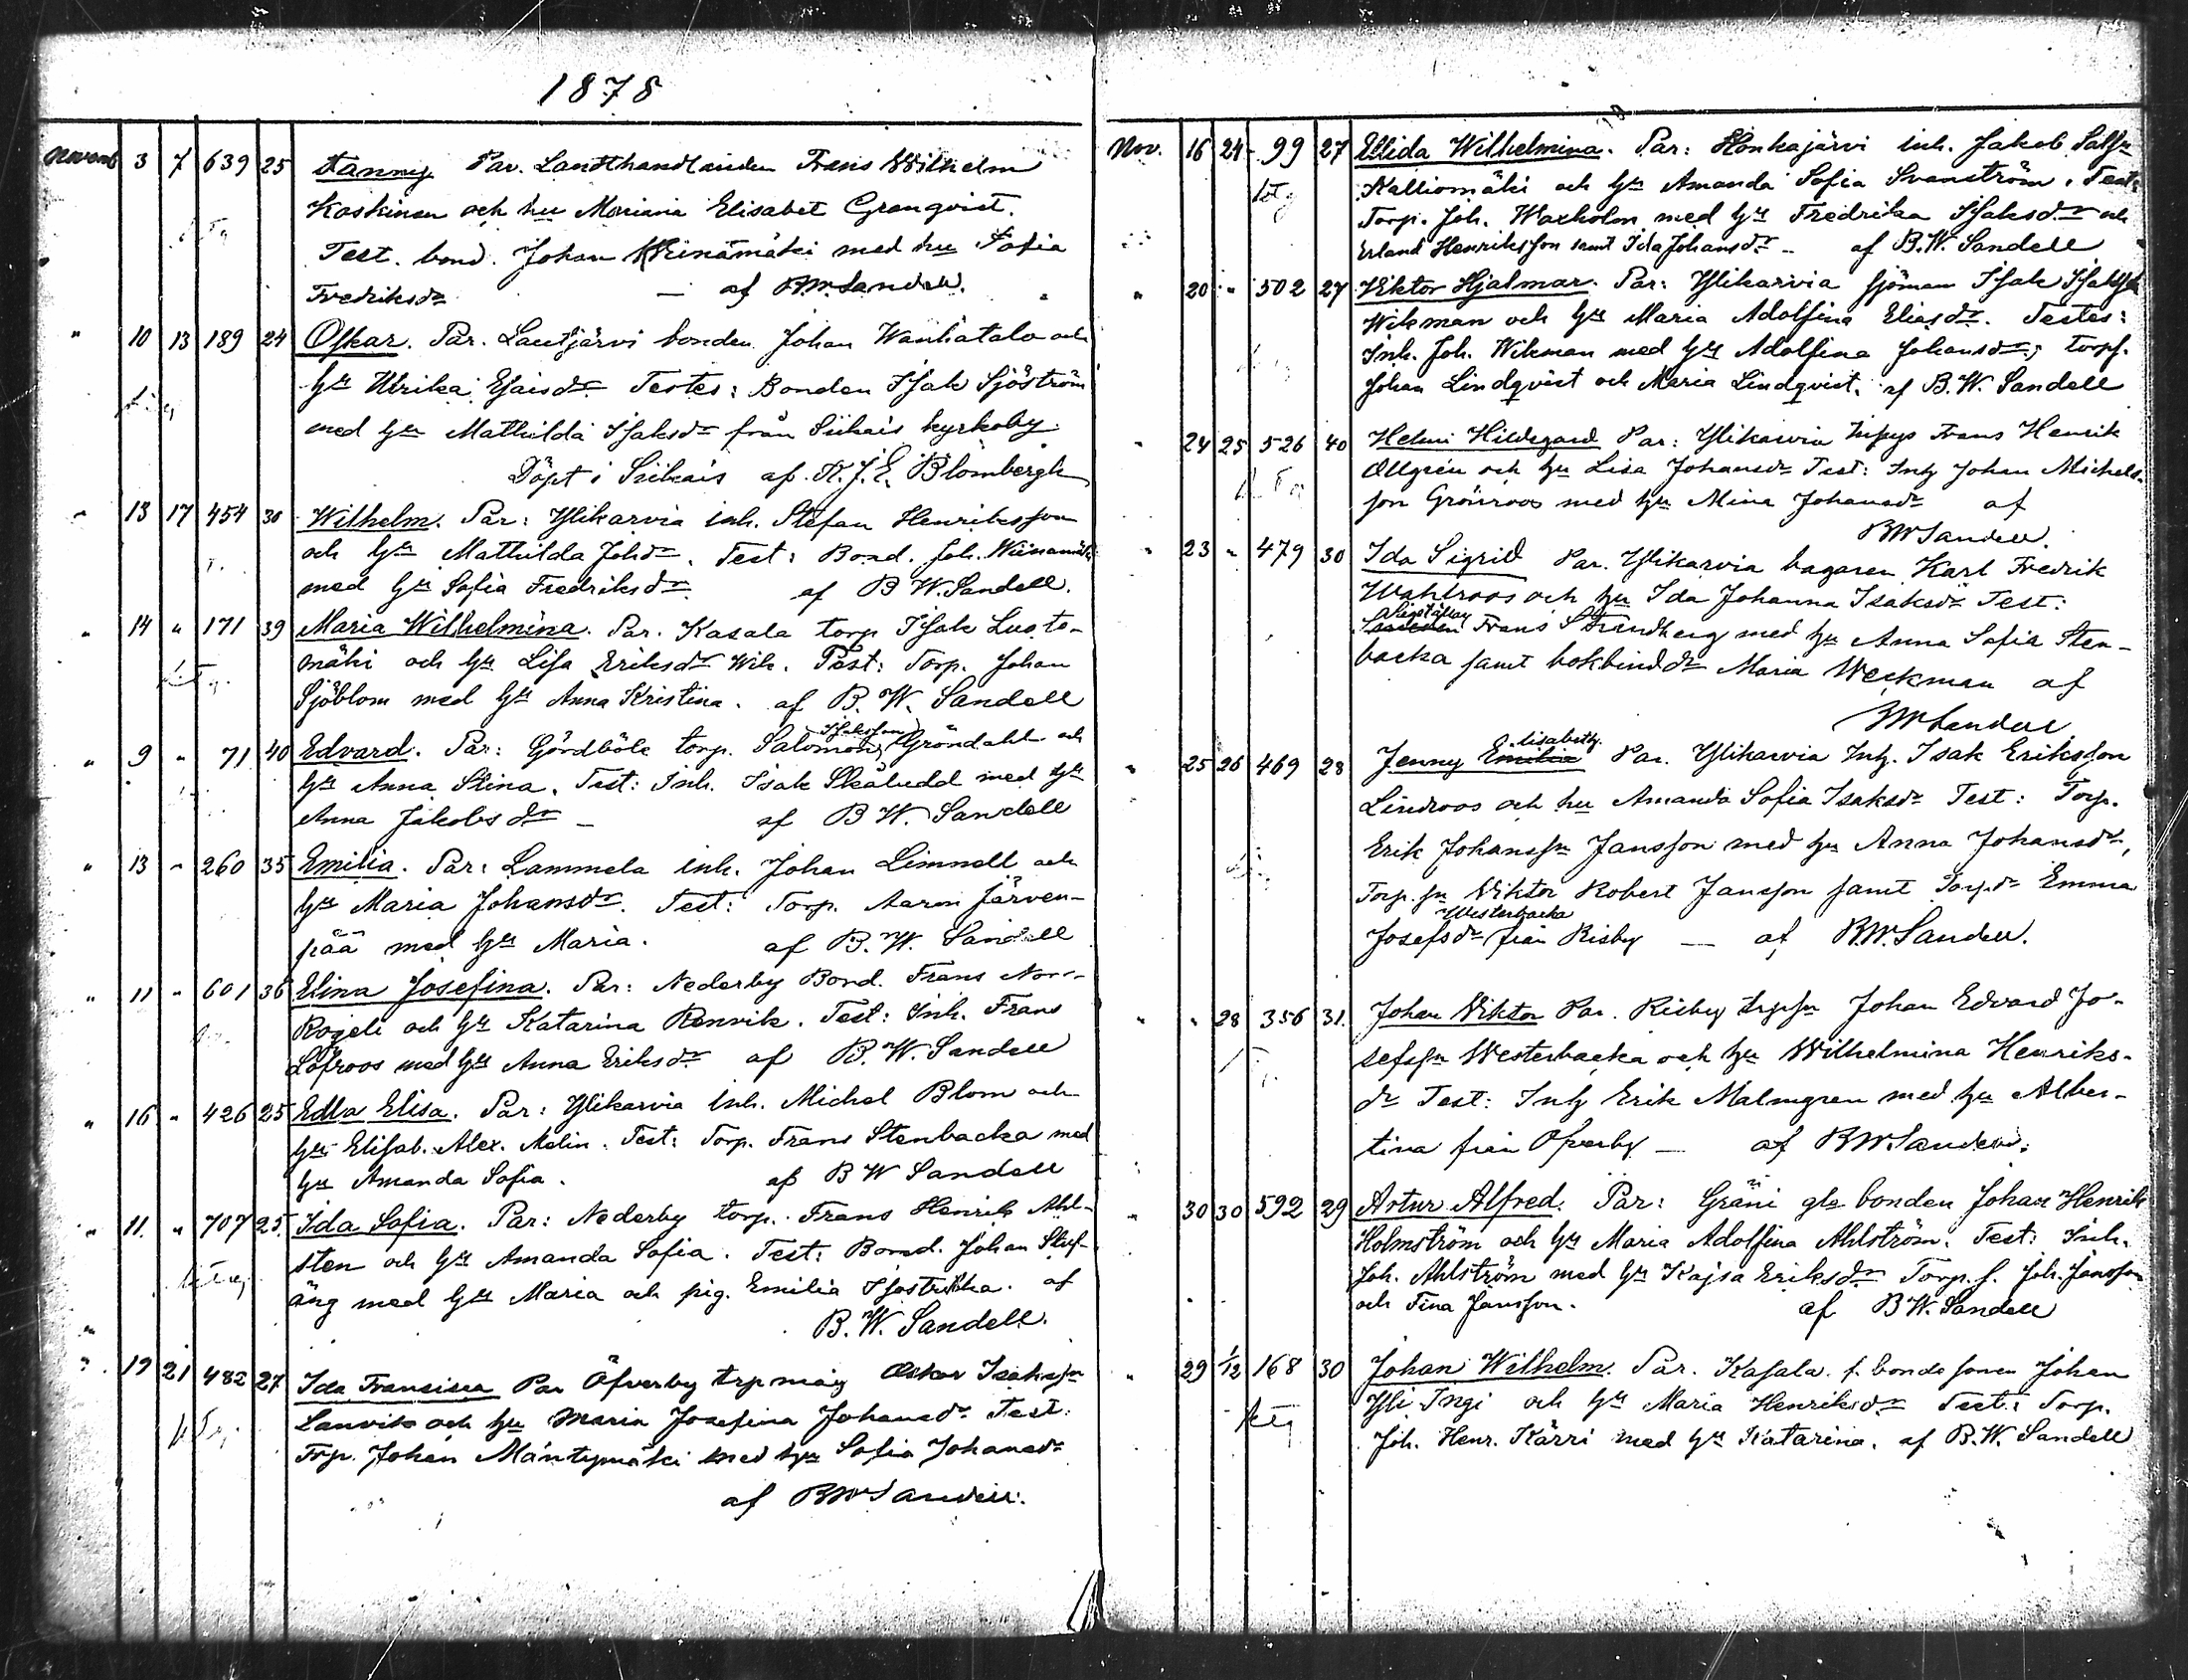 1878
Novemb 3 7 639 25 Fanny Par. Landthandlanden Frans Wilhelm
Koskinen och hu Mariana Elisabet Granqvist.
Test. bond. Johan Weinämäki med hu Sofia
Fredriksdr — af B.W. Sandell.
" 10 13 189 24 Oskar. Par. Lautjärvi bonden Johan Wanhatalo och
hu Ulrika Esaisdr. Testes: Bonden Isak Sjöström
med hu Mathilda Isaksdr från Siikais kyrkoby.
Döpt i Siikais af K. J. E. Blombergh
" 13 17 454 30 Wilhelm. Par: Ylikarvia inh. Stefan Henriksson
och hu Mathilda Johdr. Test: Bond. Joh. Weinämäki
med hu Sofia Fredriksdr af B W. Sandell.
" 14 " 171 39 Maria Wilhelmina. Par. Kasala torp Isak Luoto-
mäki och hu Lisa Eriksdr Wik. Test: Torp. Johan
Sjöblom med hu Anna Kristina. af B. W. Sandell
Isaksson
" 9 " 71 40 Edvard. Par: Gårdböle torp. Salomon Gröndahl och
hu Anna Stina. Test: Inh. Isak Skåludd med hu
Anna Jakobsdr — af B W. Sandell
" 13 " 260 35 Emilia. Par: Lammela inh. Johan Limnell och
hu Maria Johansdr. Test: Torp. Aaron Järven-
pää med hu Maria. af B. W. Sandell
" 11 " 601 36 Elina Josefina. Par: Nederby Bond. Frans Norr-
Rogeli och hu Katarina Renvik. Test: Inh. Frans
Löfroos med hu Anna Eriksdr af B. W. Sandell
" 16 " 426 25 Edla Elisa. Par: Ylikarvia inh. Michel Blom och
hu Elisab. Alex. Melin. Test: Torp. Frans Stenbacka med
hu Amanda Sofia. af B W Sandell
" 11. " 707 25. Ida Sofia. Par: Nederby torp. Frans Henrik Ahl-
sten och hu Amanda Sofia. Test: Bond. Johan Stor-
äng med hu Maria och pig. Emilia af
B. W. Sandell.
" 19 21 482 27 Ida Francisca Par Öfverby trpmåg Oskar Isakssn
Lanvik och hu Maria Josefina Johansdr Test.
Trp. Johan Mäntymäki med hu Sofia Johansdr
af B.W. Sandell.
Nov. 16 24 99 27 Ellida Wilhelmina. Par: Honkajärvi inh. Jakob
Kalliomäki och hu Amanda Sofia Svanström. Test:
Torp. Joh. Waxholm med hu Fredrika Isaksdr och
Erland Henriksson samt Ida Johansdr — af B.W. Sandell
" 20 " 502 27 Viktor Hjalmar. Par: Ylikarvia sjöman Isak Isaksson
Wikman och hu Maria Adolfina Eliasdr. Testes:
Inh. Joh. Wikman med hu Adolfina Johansdr; torps.
Johan Lindqvist och Maria Lindqvist. af B. W. Sandell
" 24 25 526 40 Helmi Hildegard Par: Ylikarvia Inhys Frans Henrik
Ahlgrén och hu Lisa Johansdr Test: Inh Johan Michels-
son Grönroos med hu Mina Johansdr af
B W Sandell.
" 23 " 479 30 Ida Sigrid Par. Ylikarvia bagaren Karl Fredrik
Wahlroos och hu Ida Johanna Isaksdr Test:
Frans Strandberg med hu Anna Sofia Sten-
backa samt bokbinddr Maria Weckman af
B W Sandell
lisabeth
" 25 26 469 28 Jenny Emilia Par. Ylikarvia Inh. Isak Eriksson
Lindroos och hu Amanda Sofia Isaksdr Test: Torp.
Erik Johanssn Jansson med hu Anna Johansdr,
Torp.sn Viktor Robert Jansson samt Torp.dr Emma
Westerbacka
Josefsdr från Risby — af B.W. Sandell.
" " 28 356 31. Johan Viktor Par. Risby trpsn Johan Edvard Jo-
sefssn Westerbacka och hu Wilhelmina Henriks-
dr Test: Inh Erik Malmgren med hu Alber-
tina från Öfverby — af B W Sandell.
" 30 30 592 29 Artur Alfred. Par: Gräni gle bonden Johan Henrik
Holmström och hu Maria Adolfina Ahlström. Test: Inh.
Joh. Ahlström med hu Kajsa Eriksdr Torp.s. Joh. Jansson
och Fina Jansson. af B W. Sandell
" 29 1/12 168 30 Johan Wilhelm. Par. Kasala. f. bonde sonen Johan
Yli Ingi och hu Maria Henriksdr Test: Torp.
Joh. Henr. Kärri med hu Katarina. af B.W. Sandell